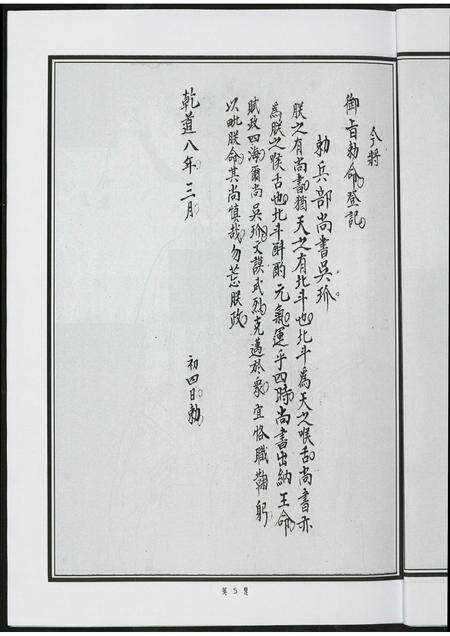 今將
御旨勅命登記
勅兵部尚書吳玠
朕之有尚書猶天之有北斗也北斗為天之喉舌尚書亦
為朕之喉舌也北斗斟酌元氣運乎四時尚書出納王命
賦政四海爾尚吳玠文謨武烈克邁於衆宜恪職鞠躬
以毗朕命其尚慎哉勿忘朕政
乾道八年三月
初四日勅
第5頁